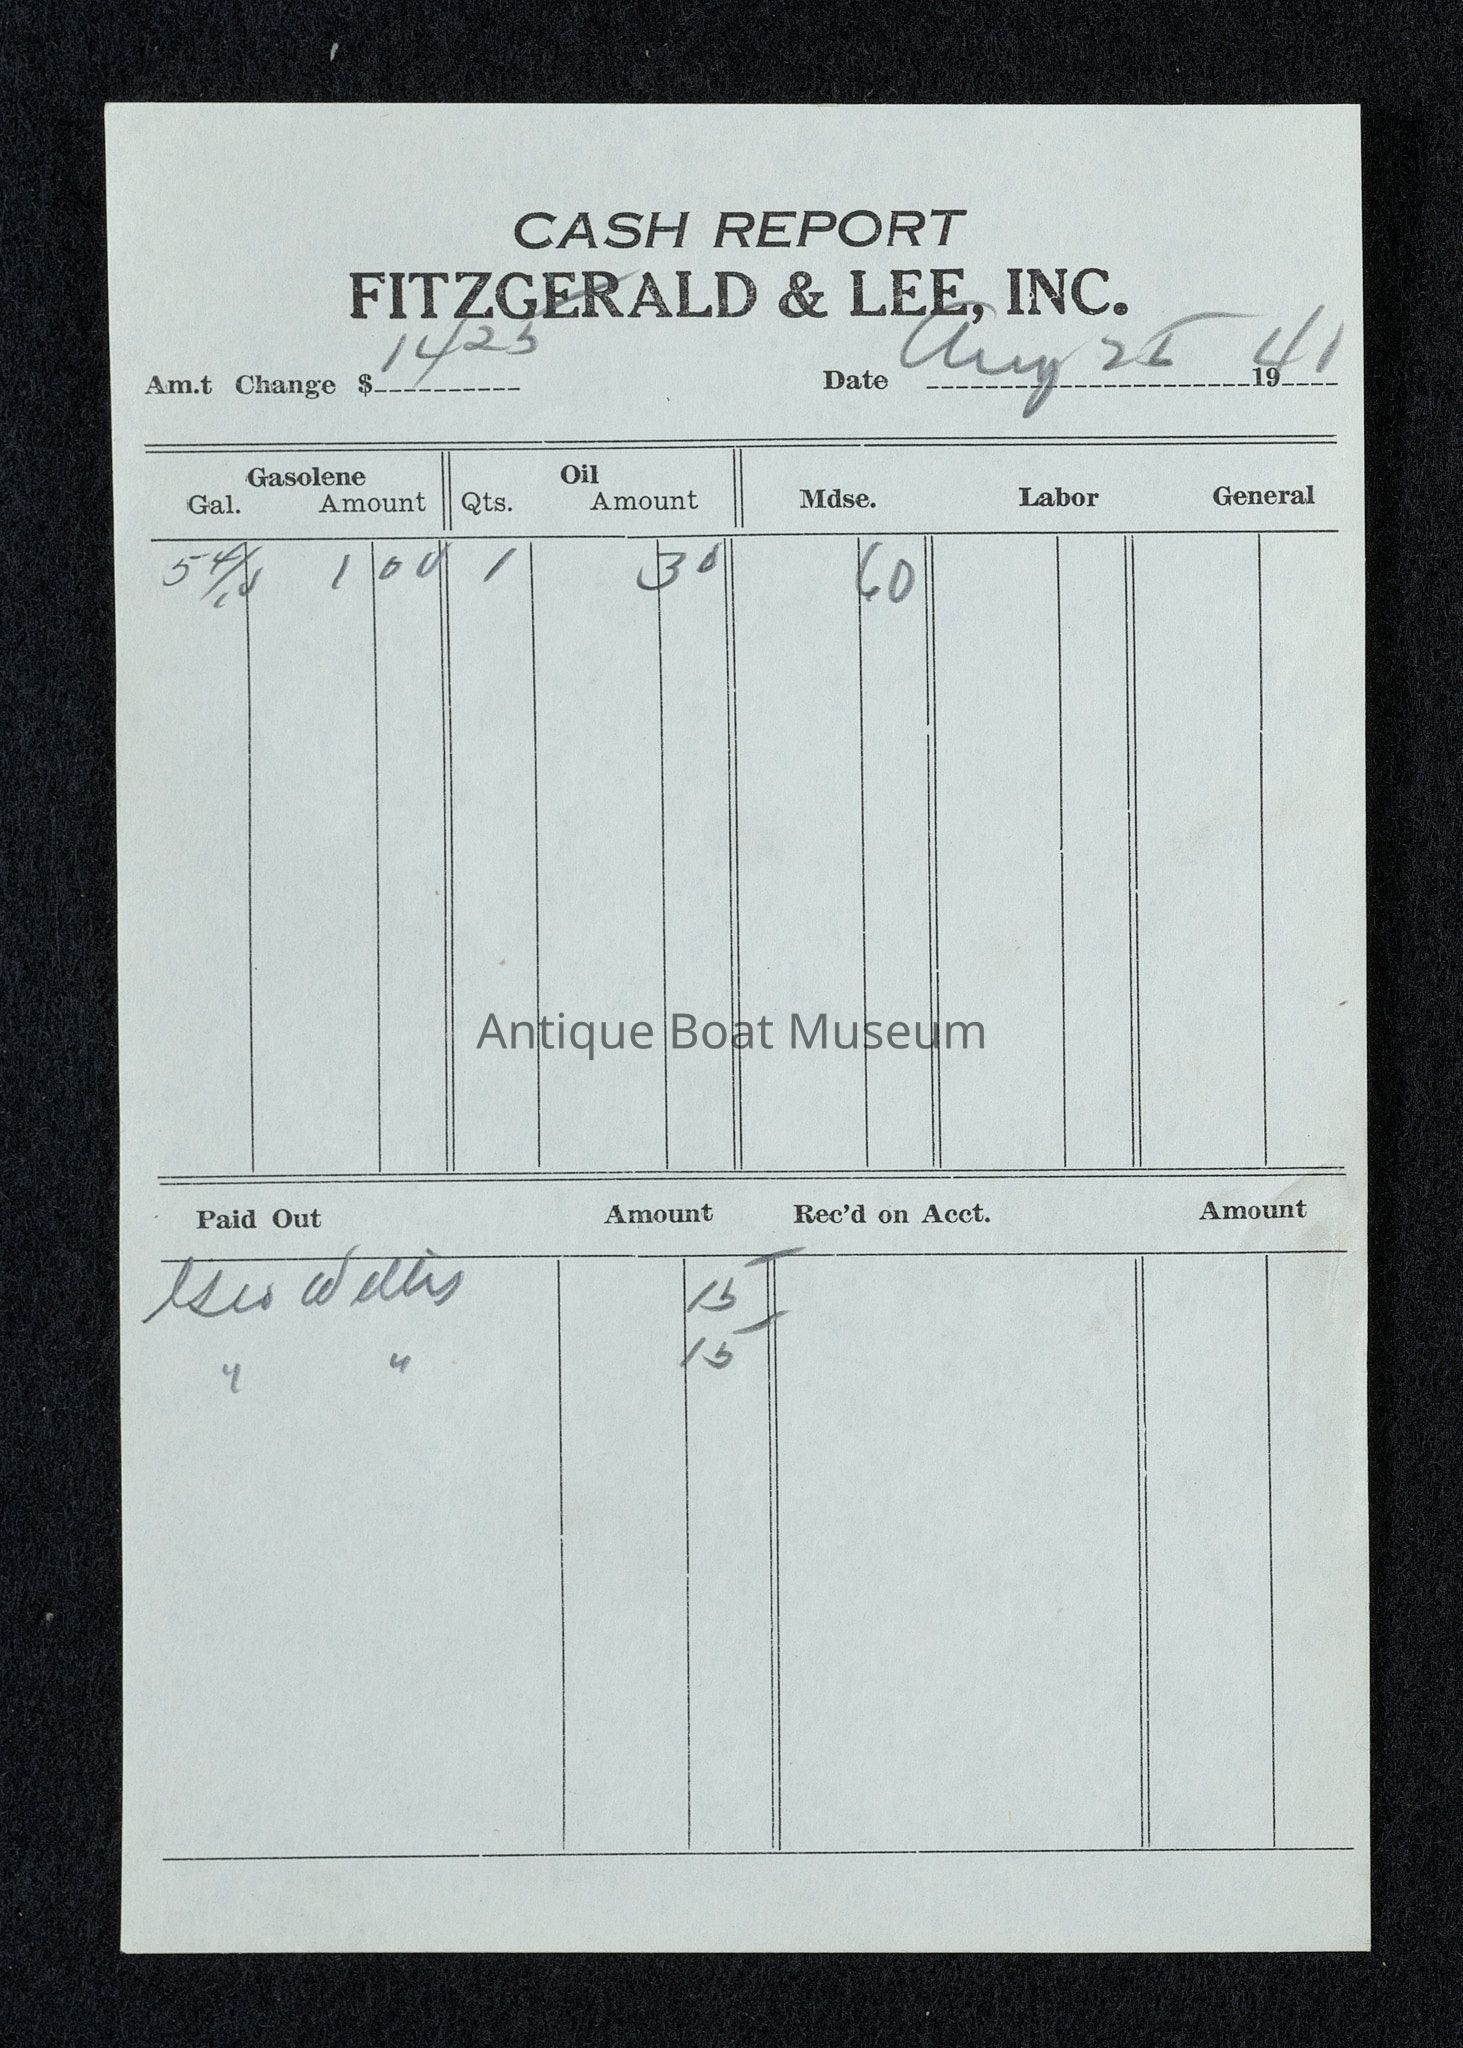 CASH REPORT
FITZGERALD & LEE, INC.
Am.t Change $ 1425 Date Aug 25 1941
Gasolene Oil
Gal. Amount Qts. Amount Mdse. Labor General
5 4/10 1 00 1 30 60
Antique Boat Museum
Paid Out Amount Rec'd on Acct. Amount
Geo Wellis 15
" " 15